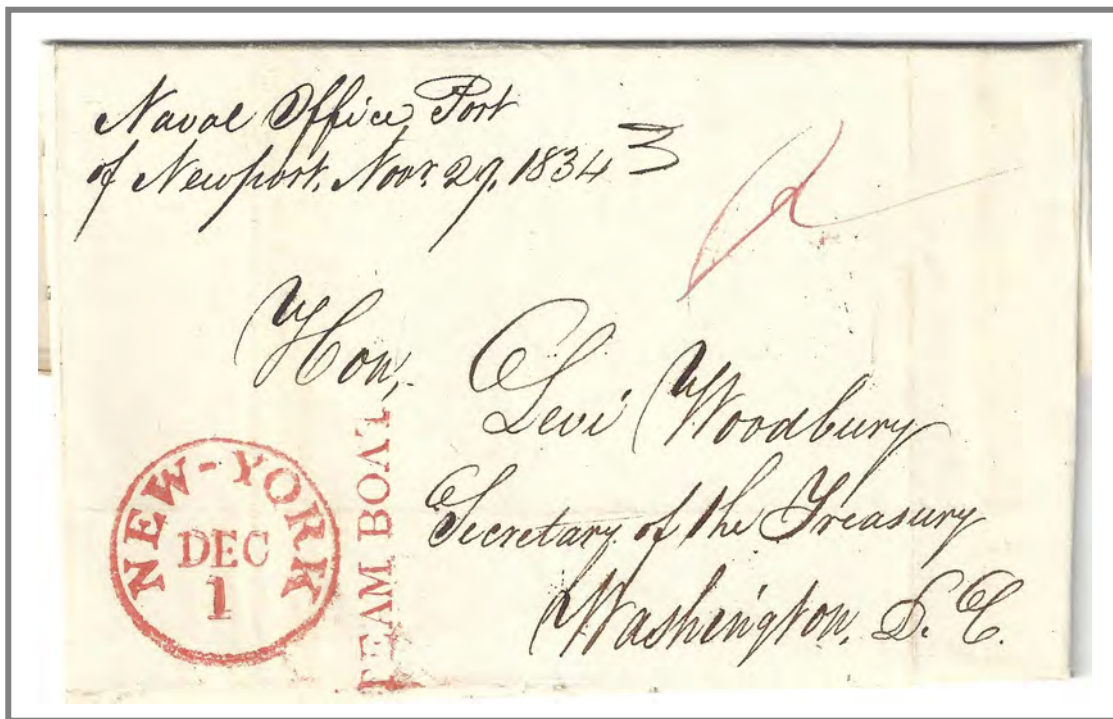 Naval Office Port
of Newport, Novr. 29, 1834
Hon,
Levi Woodbury
Secretary of the Treasury
Washington, D. C.
NEW-YORK
DEC
1
TEAM BOAT